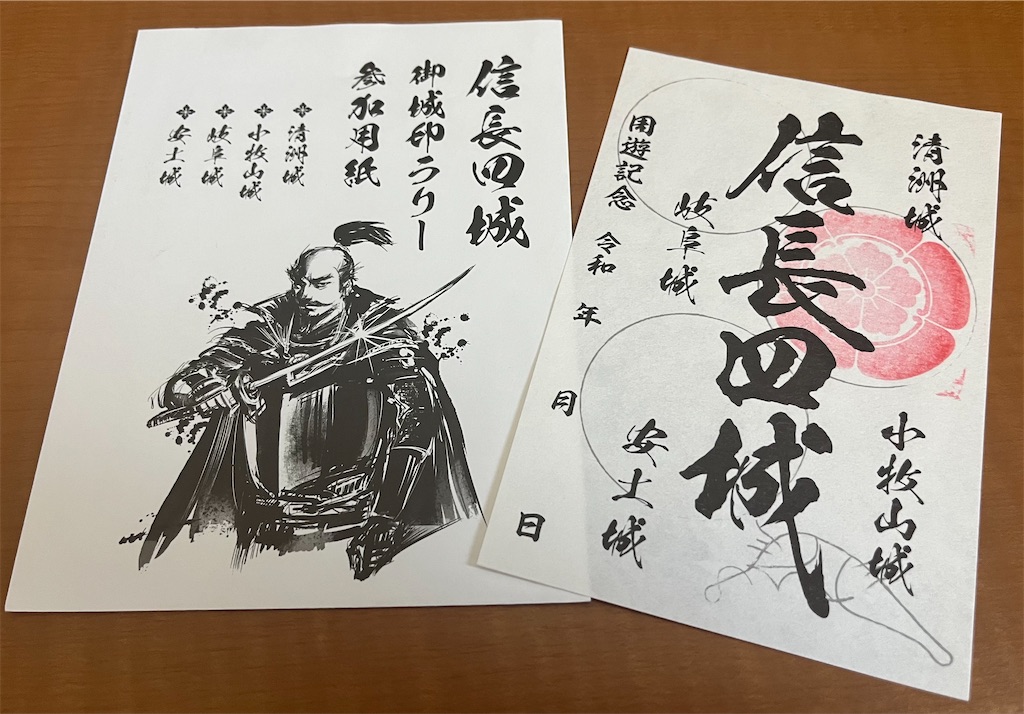 信長四城
御城印らりー
参加用紙
清洲城
小牧山城
岐阜城
安土城
清洲城
小牧山城
信長四城
岐阜城
安土城
周遊記念
令和 年 月 日